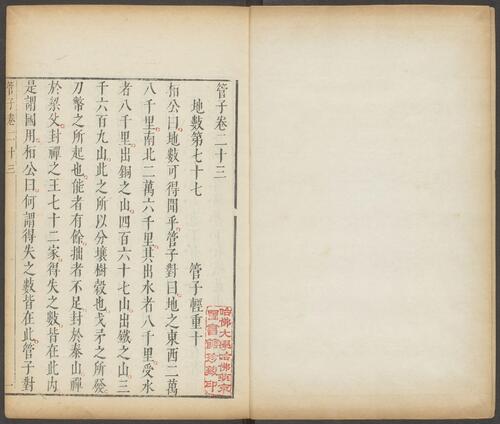 管子卷二十三
地數第七十七
管子輕重十
桓公曰地數可得聞乎管子對曰地之東西二萬
八千里南北二萬六千里其出水者八千里受水
者八千里出銅之山四百六十七山出鐵之山三
千六百九山此之所以分壤樹穀也戈矛之所發
刀幣之所起也能者有餘拙者不足封於泰山禪
於梁父封禪之王七十二家得失之數皆在此內
是謂國用桓公曰何謂得失之數皆在此管子對
管子卷二十三
一
哈佛大學哈佛燕京
圖書館珍藏印